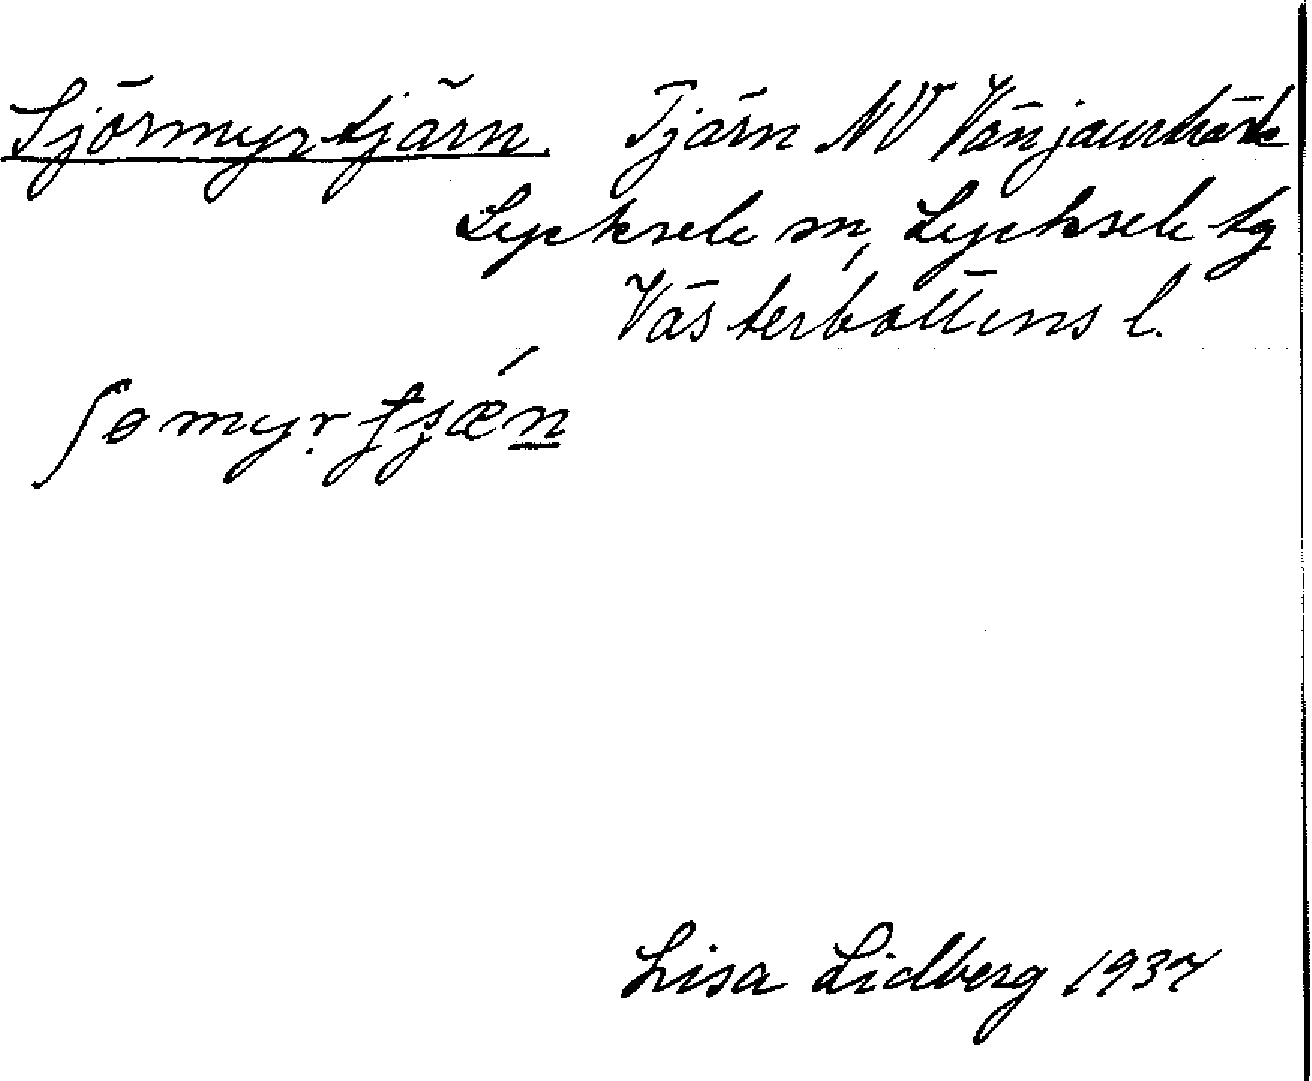 Sjörmyrtjärn. Tjärn NV Vänjaurbäck
Lycksele sn, Lycksele tg
Västerbottens l.
ʃomyr tjǽn
Lisa Lidberg 1937